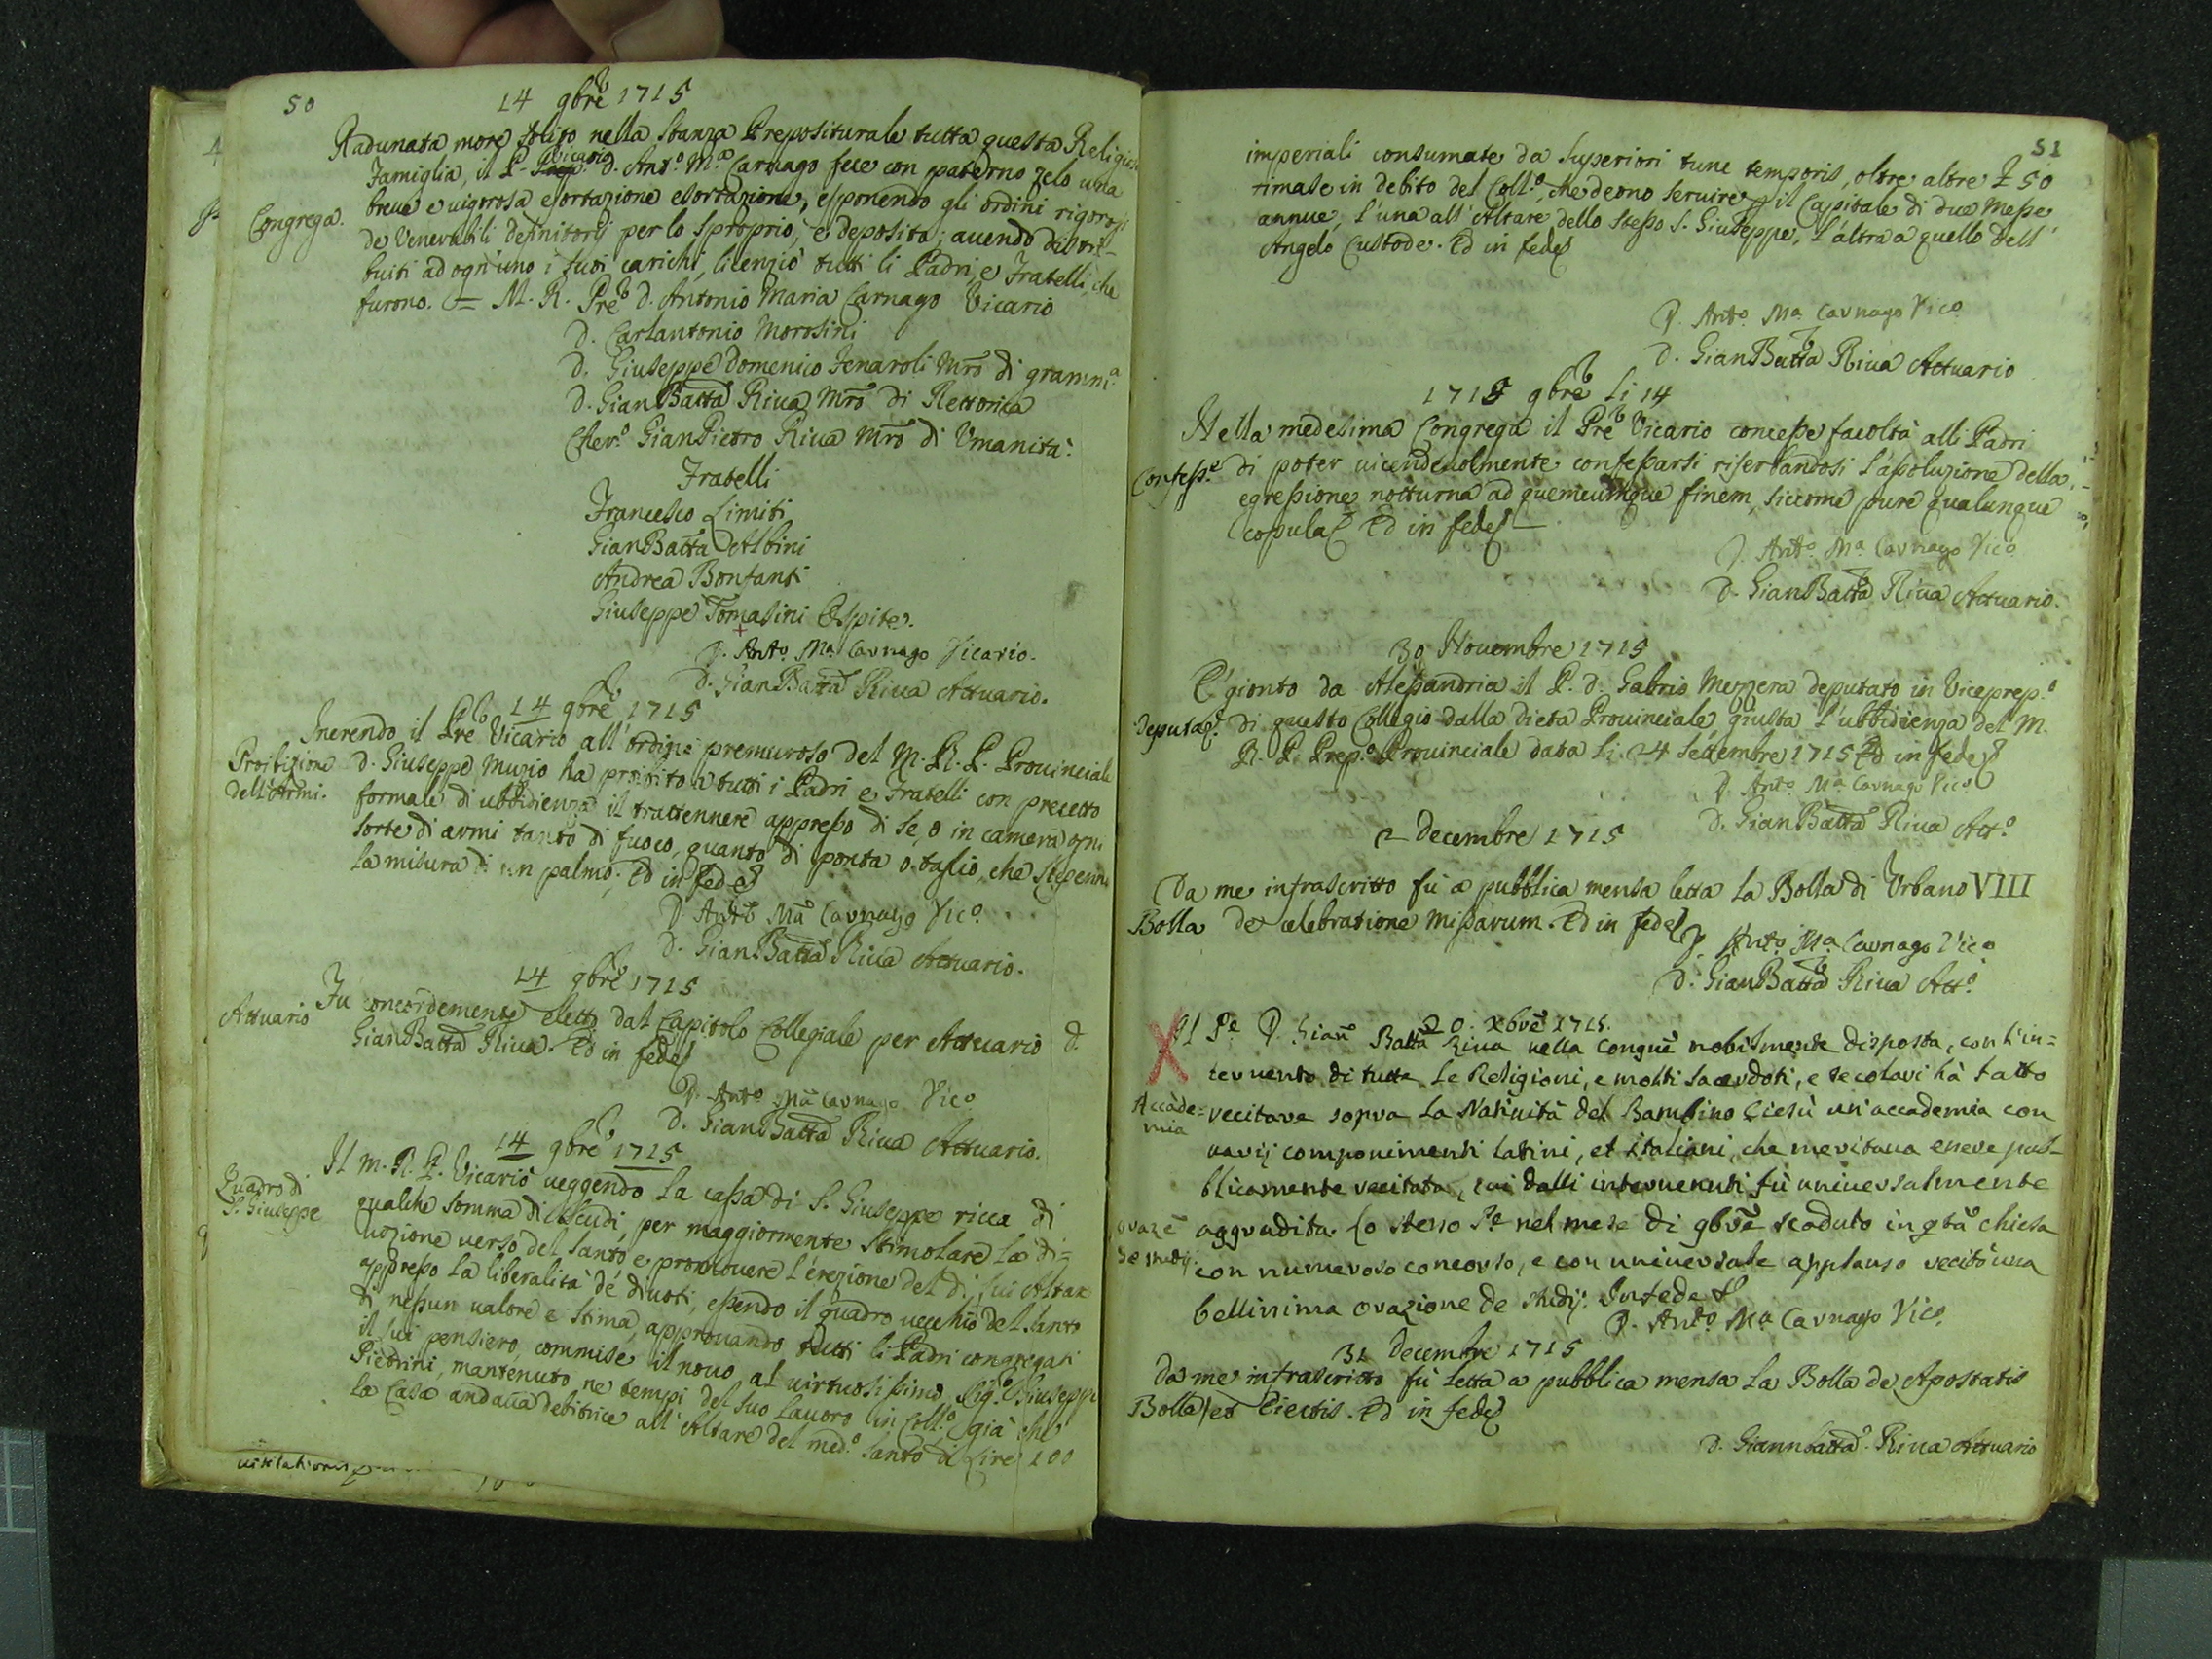 50
14 9bre 1715
Radunata more solito nella Stanza Prepositurale tutta questa Religiosa
Famiglia, il P. Vicario D. Ant.o M.a Carnago fece con paterno zelo una
Congrega. breve e vigorosa esortazione esortazione, esponendo gli ordini rigorosi
de Venerabili Definitorij per lo sproprio, e deposito; avendo distri-
buiti ad ogn'uno i suoi carichi, licenziò tutti li Padri, e Fratelli, che
furono. = M. R. Pre D. Antonio Maria Carnago Vicario
D. Carlantonio Morosini
D. Giuseppe Domenico Fenaroli Mro di gramm.a
D. GianBatta Riva Mro di Rettorica
Cher.o GianPietro Riva Mro di Umanità.
Fratelli
Francesco Limiti
GianBatta Albini
Andrea Bonfanti
Giuseppe Tomasini Ospite.
D. Anto. Ma. Carnago Vicario.
D. GianBatta Riva Attuario.
14 9bre 1715
Inerendo il Pre Vicario all'ordine premuroso del M. R. P. Provinciale
Proibizione D. Giuseppe Muzio ha proibito a tutti i Padri e Fratelli con precetto
dell'Armi. formale di ubbidienza il trattennere appresso di se, o in camera ogni
sorte di armi tanto di fuoco, quanto di ponta o taglio, che
la misura di un palmo; Ed in fede
D. Anto Ma Carnago Vico.
D. GianBatta Riva Attuario.
14 9bre 1715
Attuario Fu concordemente eletto dal Capitolo Collegiale per Attuario D.
GianBatta Riva. Ed in fede
D. Anto Ma Carnago Vico
D. GianBatta Riva Attuario.
14 9bre 1715
Il M. R. P. Vicario veggendo la cassa di S. Giuseppe ricca di
Quadro di qualche somma di Scudi, per maggiormente stimolare la di-
S. Giuseppe vozione verso del Santo e promovere l'erezione del di lui Altare
appresso la liberalità de' divoti, essendo il quadro vecchio del Santo
di nessun valore e stima, approvando tutti li Padri congregati
il sui pensiero, commise il novo al virtuosissimo Sig.r Giuseppe
Pietrini, mantenuto ne' tempi del suo lavoro in Coll.o, già che
la Casa andava debitrice all'Altare del med.o Santo di Lire 100
51
imperiali consumate da Superiori tunc temporis, oltre altre £ 50
rimaste in debito del Coll.o, che deono servire il Capitale di due Messe
annue, l'una all'Altare dello stesso S. Giuseppe, l'altra a quello dell'
Angelo Custode. Ed in fede
D. Anto. Ma Carnago Vico.
D. GianBatta Riva Attuario
1715 9bre li 14
Nella medesima Congrega il Pre Vicario concesse facoltà alli Padri
Confess.e di poter vicendevolmente confessarsi riserbandosi l'assoluzione della
egressione notturna ad quemcumque finem, siccome pure qualunque
copula. Ed in fede
D. Anto. Ma Carnago Vico
D. GianBatta Riva Attuario.
30 Novembre 1715
E' gionto da Alessandria il P. D. Gabrio Mezzera deputato in Viceprep.o
Deputaz.e di questo Collegio dalla Dieta Provinciale, giusta l'ubbidienza del M.
R. P. Prep.o Provinciale data li 24 Settembre 1715 Ed in fede
D. Anto Ma Carnago Vico
D. GianBatta Riva Att.o
2 Decembre 1715
Da me infrascritto fu a pubblica mensa letta la Bolla di Urbano VIII
Bolla de celebratione Missarum. Ed in fede
D. Anto. Ma Carnago Vico
D. GianBatta Riva Att.o
20. Xbre 1715.
Il Pe D. Gian Batta Riva nella Congne nobilmente disposta, con l'in=
tervento di tutte le Religioni, e molti sacerdoti, e secolari hà fatto
Accade=mia recitare sopra la Natività del Bambino Giesù un'accademia con
varij componimenti latini, et italiani, che meritava essere pub-
blicamente recitata, e dalli intervenuti fù universalmente
orazê aggradita. Lo stesso Pe nel mese di 9bre scaduto in qta chiesa
de studij. con numeroso concorso, e con universale applauso recitò una
bellissima orazione de studij. In fede
D. Anto. Ma Carnago Vico.
31 Decembre 1715
Da me infrascritto fu letta a pubblica mensa la Bolla de Apostatis
Bolla et Eiectis. Ed in fede
D. GiannBatta Riva Attuario